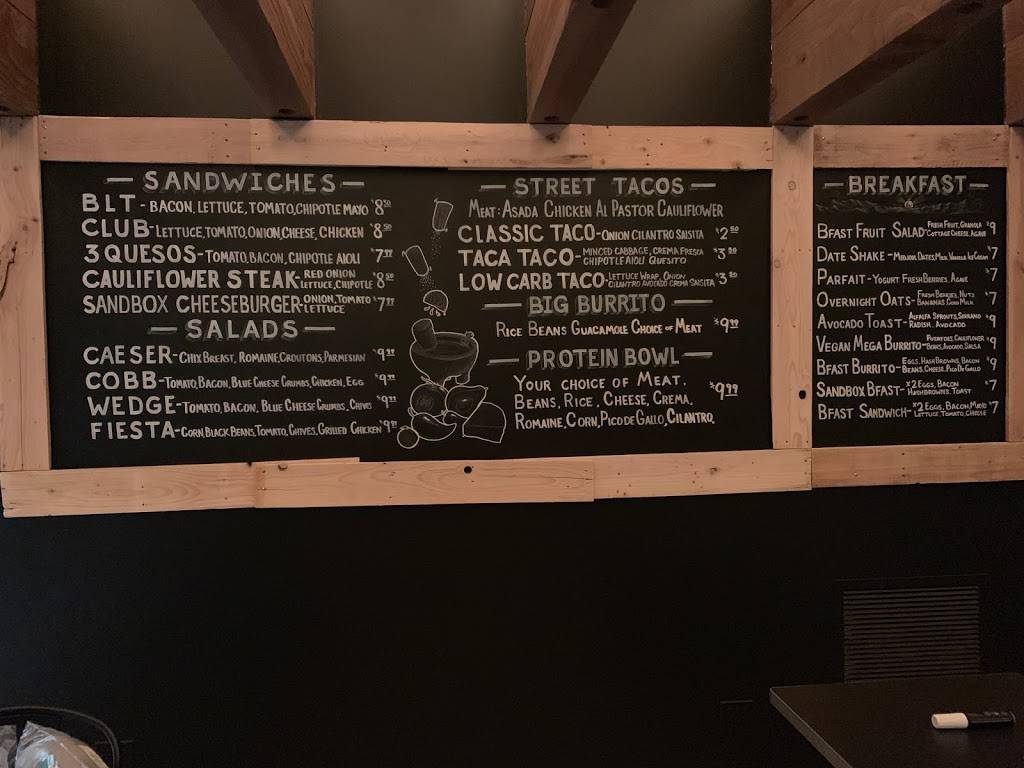 — SANDWICHES —
BLT - BACON, LETTUCE, TOMATO, CHIPOTLE MAYO $8.50
CLUB - LETTUCE, TOMATO, ONION, CHEESE, CHICKEN $8.50
3 QUESOS - TOMATO, BACON, CHIPOTLE AIOLI $7.99
CAULIFLOWER STEAK - RED ONION
LETTUCE, CHIPOTLE $8.50
SANDBOX CHEESEBURGER - ONION, TOMATO
LETTUCE $7.99
— SALADS —
CAESER - CHIX BREAST, ROMAINE, CROUTONS, PARMESIAN $9.99
COBB - TOMATO, BACON, BLUE CHEESE CRUMBS, CHICKEN, EGG $9.99
WEDGE - TOMATO, BACON, BLUE CHEESE CRUMBS, CHIVES $9.99
FIESTA - CORN, BLACK BEANS, TOMATO, CHIVES, GRILLED CHICKEN $9.99
— STREET TACOS —
MEAT: ASADA CHICKEN AL PASTOR CAULIFLOWER
CLASSIC TACO - ONION CILANTRO SALSITA $2.50
TACA TACO - MINCED CABBAGE, CREMA FRESCA
CHIPOTLE AIOLI QUESITO $3.50
LOW CARB TACO - LETTUCE WRAP, ONION
CILANTRO AVOCADO CREMA SALSITA $3.50
— BIG BURRITO —
RICE BEANS GUACAMOLE CHOICE OF MEAT $9.99
— PROTEIN BOWL —
YOUR CHOICE OF MEAT.
BEANS, RICE, CHEESE, CREMA. $9.99
ROMAINE, CORN, PICO DE GALLO, CILANTRO.
— BREAKFAST —
BFAST FRUIT SALAD - FRESH FRUIT, GRANOLA
COTTAGE CHEESE, AGAVE $9
DATE SHAKE - MEDJOOL DATES, MILK, VANILLA ICE CREAM $7
PARFAIT - YOGURT FRESH BERRIES, AGAVE $7
OVERNIGHT OATS - FRESH BERRIES, NUTS
BANANAS, MILK $7
AVOCADO TOAST - ALFALFA SPROUTS, SERRANO
RADISH, AVOCADO $9
VEGAN MEGA BURRITO - POTATOES, CAULIFLOWER
BEANS, AVOCADO, SALSA $9
BFAST BURRITO - EGGS, HASH BROWNS, BACON
BEANS, CHEESE, PICO DE GALLO $9
SANDBOX BFAST - X2 EGGS, BACON
HASHBROWNS, TOAST $7
BFAST SANDWICH - X2 EGGS, BACON, MAYO
LETTUCE, TOMATO, CHEESE $7